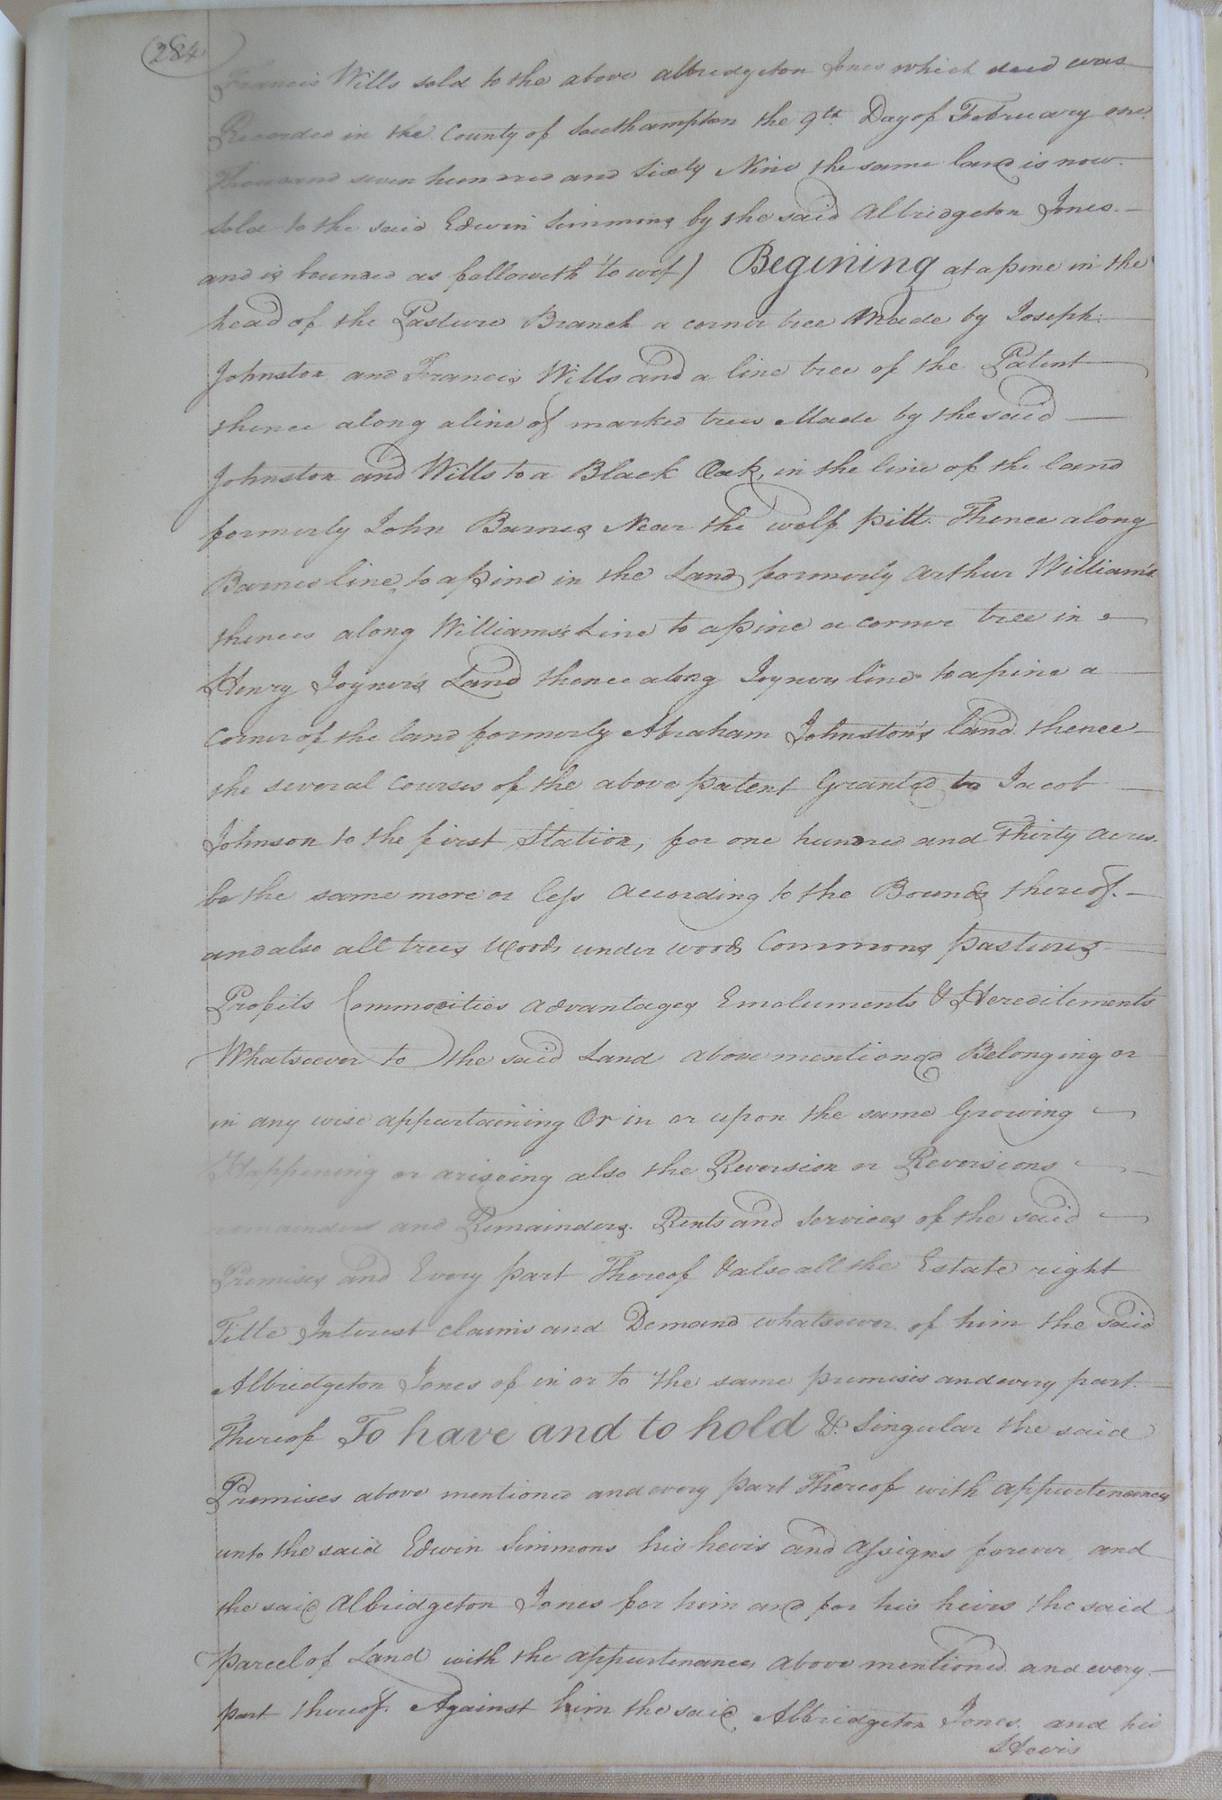 284
Francis Wills sold to the above Albridgeton Jones which deed was
Recorded in the County of Southampton the 9th Day of February one
Thousand seven hundred and Sixty Nine the same land is now
sold to the said Edwin Simmons by the said Albridgeton Jones
and is bounded as followeth to wit) Begining at a pine in the
head of the Pasture Branch a corner tree Made by Joseph
Johnston and Francis Wills and a line tree of the Patent
thence along a line of marked trees Made by the said
Johnston and Wills to a Black Oak, in the line of the land
formerly John Barnes Near the wolf pitt. Thence along
Barnes line, to a pine in the Land formerly Arthur William's
thence along Williams's Line to a pine a corner tree in
Henry Joyner's Land thence along Joyners line to a pine a
corner of the land formerly Abraham Johnston's land thence
the several courses of the above patent Granted to Jacob
Johnson to the first Station, for one hundred and Thirty acres.
be the same more or less according to the Bounds thereof.
and also all trees woods under woods Commons pastures
Profits Commodities advantages Emoluments & Hereditements
Whatsoever to the said Land above mentioned Belonging or
in any wise appurtaining Or in or upon the same Growing
Happening or ariseing also the Reversion or Reversions
remainder and Remainders. Rents and Services of the said
Premises and Every part Thereof & also all the Estate right
Title Interest claims and Demand whatsoever of him the said
Albridgeton Jones of in or to the same premises and every part.
Thereof To have and to hold &. Singular the said
Premises above mentioned and every part Thereof with appurtenances
unto the said Edwin Simmons his heirs and assigns forever and
the said Albridgeton Jones for him and for his heirs the said
parcel of Land with the appurtenances above mentioned and every
part thereof. Against him the said Albridgeton Jones and his
Heirs